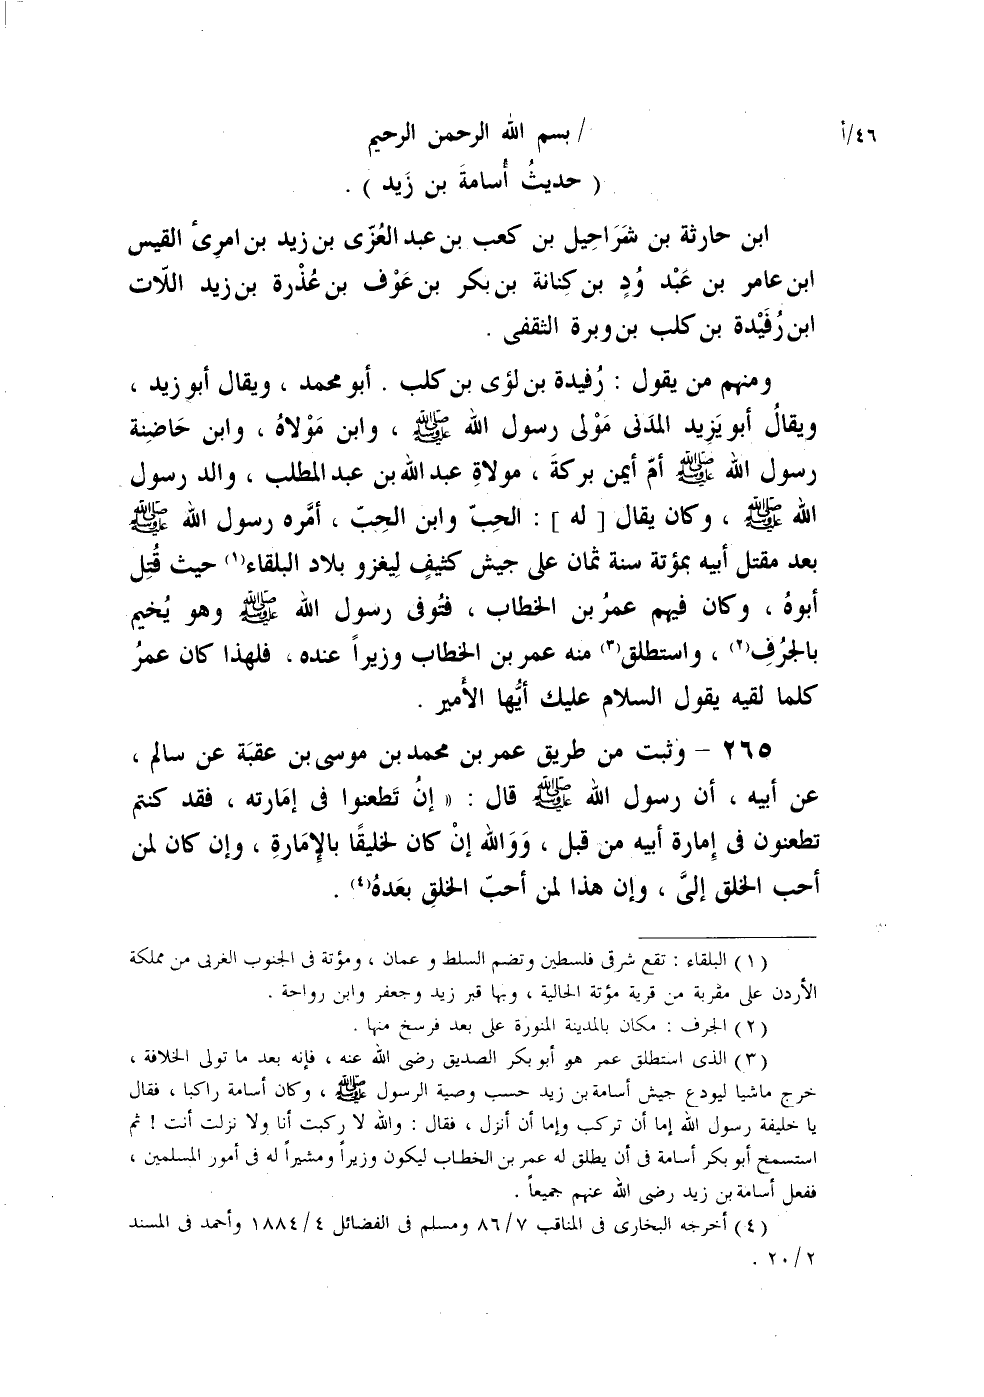 ٤٦/أ
/ بسم الله الرحمن الرحيم
( حديثُ أُسامةَ بن زَيد ) .
ابن حارثة بن شَرَاحِيل بن كعب بن عبد العُزّى بن زيد بن امرِىٔ القيس
ابن عامر بن عَبْد وُدٍ بن كِنانة بن بكر بن عَوْف بن عُذْرة بن زيد اللّات
ابن رُفَيْدة بن كلب بن وبرة الثقفى .
ومنهم من يقول : رُفيدة بن لؤى بن كلب . أبو محمد ، ويقال أبو زيد ،
ويقالُ أبو يَزِيد المدَنى مَوْلى رسول الله ﷺ ، وابن مَوْلاهُ ، وابن حَاضِنة
رسول الله ﷺ أمّ أيمن بركةَ ، مولاةِ عبد الله بن عبد المطلب ، والد رسول
الله ﷺ ، وكان يقال [ له ] : الحِبّ وابن الحِبّ ، أمَّره رسول الله ﷺ
بعد مقتل أبيه بمؤتة سنة ثمان على جيش كثيفٍ لِيغزو بلاد البلقاء(١) حيث قُتِل
أبوهُ ، وكان فيهم عمرُ بن الخطاب ، فتُوفى رسول الله ﷺ وهو يُخيم
بالجُرُفِ(٢) ، واستطلق(٣) منه عمر بن الخطاب وزيراً عنده ، فلهذا كان عمرُ
كلما لقيه يقول السلام عليك أيُّها الأَمير .
٢٦٥ – وثبت من طريق عمر بن محمد بن موسى بن عقبَة عن سالم ،
عن أبيه ، أن رسول الله ﷺ قال : « إنُ تَطعنوا فى إمَارته ، فقد كنتم
تطعنون فى إمارة أبيه من قبل ، وَوَالله إنْ كان لخليقًا بالإِمَارةِ ، وإن كان لمن
أحب الخلق إلىَّ ، وإن هذا لمن أحبّ الخلقِ بعَدهُ(٤) .
(١) البلقاء : تقع شرقى فلسطين وتضم السلط و عمان ، ومؤتة فى الجنوب الغربى من مملكة
الأردن على مقربة من قرية مؤتة الحالية ، وبها قبر زيد وجعفر وابن رواحة .
(٢) الجرف : مكان بالمدينة المنورة على بعد فرسخ منها .
(٣) الذى استطلق عمر هو أبو بكر الصديق رضى الله عنه ، فإنه بعد ما تولى الخلافة ،
خرج ماشيا ليودع جيش أسامة بن زيد حسب وصية الرسول ﷺ ، وكان أسامة راكبا ، فقال
يا خليفة رسول الله إما أن تركب وإما أن أنزل ، فقال : والله لا ركبت أنا ولا نزلت أنت ! ثم
استسمح أبو بكر أسامة فى أن يطلق له عمر بن الخطاب ليكون وزيراً ومشيراً له فى أمور المسلمين ،
ففعل أسامة بن زيد رضى الله عنهم جميعاً .
(٤) أخرجه البخارى فى المناقب ٨٦/٧ ومسلم فى الفضائل ١٨٨٤/٤ وأحمد فى المسند
٢٠/٢ .